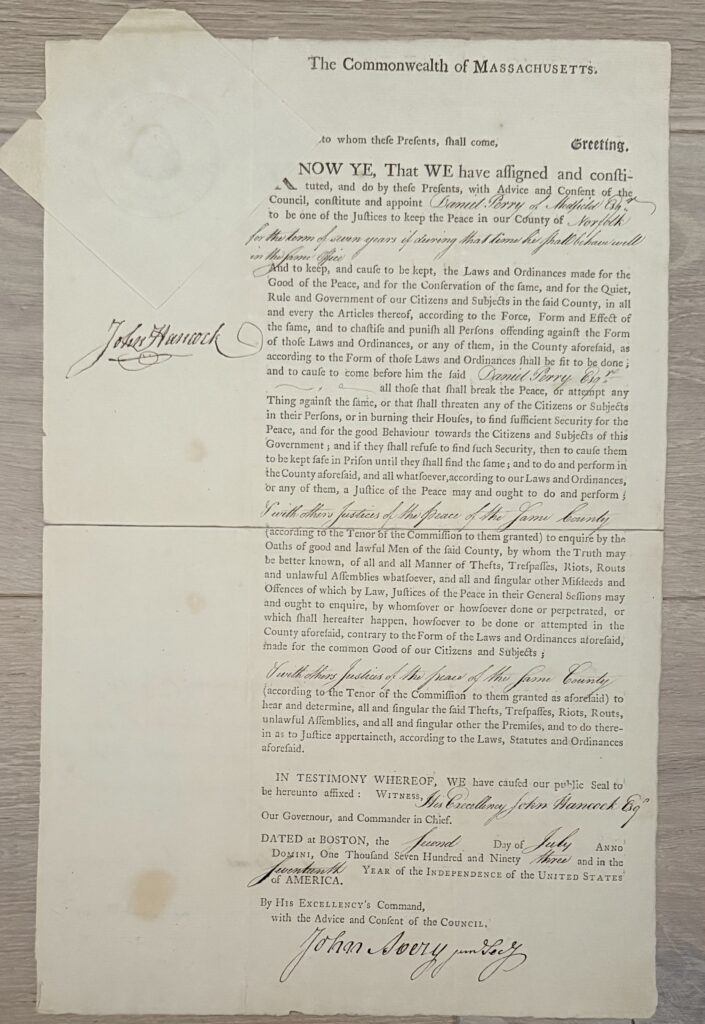 The Commonwealth of MASSACHUSETTS.
to whom theſe Preſents, ſhall come, Greeting.
NOW YE, That WE have aſſigned and conſti-
tuted, and do by theſe Preſents, with Advice and Conſent of the
Council, conſtitute and appoint Daniel Perry of Medfield Esqr
to be one of the Juſtices to keep the Peace in our County of Norfolk
for the term of seven years if during that time he shall behave well
in the same Office
And to keep, and cauſe to be kept, the Laws and Ordinances made for the
Good of the Peace, and for the Conſervation of the ſame, and for the Quiet,
Rule and Government of our Citizens and Subjects in the ſaid County, in all
and every the Articles thereof, according to the Force, Form and Effect of
the ſame, and to chaſtiſe and puniſh all Perſons offending againſt the Form
of thoſe Laws and Ordinances, or any of them, in the County aforeſaid, as
according to the Form of thoſe Laws and Ordinances ſhall be fit to be done;
and to cauſe to come before him the ſaid Daniel Perry Esqr
all thoſe that ſhall break the Peace, or attempt any
Thing againſt the ſame, or that ſhall threaten any of the Citizens or Subjects
in their Perſons, or in burning their Houſes, to find ſufficient Security for the
Peace, and for the good Behaviour towards the Citizens and Subjects of this
Government; and if they ſhall refuſe to find ſuch Security, then to cauſe them
to be kept ſafe in Priſon until they ſhall find the ſame; and to do and perform in
the County aforeſaid, and all whatſoever, according to our Laws and Ordinances,
or any of them, a Juſtice of the Peace may and ought to do and perform;
& with others Justices of the peace of the Same County
(according to the Tenor of the Commiſſion to them granted) to enquire by the
Oaths of good and lawful Men of the ſaid County, by whom the Truth may
be better known, of all and all Manner of Thefts, Treſpaſſes, Riots, Routs
and unlawful Aſſemblies whatſoever, and all and ſingular other Miſdeeds and
Offences of which by Law, Juſtices of the Peace in their General Seſſions may
and ought to enquire, by whomſover or howſoever done or perpetrated, or
which ſhall hereafter happen, howſoever to be done or attempted in the
County aforeſaid, contrary to the Form of the Laws and Ordinances aforeſaid,
made for the common Good of our Citizens and Subjects;
& with others Justices of the peace of the Same County
(according to the Tenor of the Commiſſion to them granted as aforeſaid) to
hear and determine, all and ſingular the ſaid Thefts, Treſpaſſes, Riots, Routs,
unlawful Aſſemblies, and all and ſingular other the Premiſes, and to do there-
in as to Juſtice appertaineth, according to the Laws, Statutes and Ordinances
aforeſaid.
John Hancock
IN TESTIMONY WHEREOF, WE have cauſed our public Seal to
be hereunto affixed: WITNESS, His Excellency John Hancock Esqr
Our Governour, and Commander in Chief.
DATED at BOSTON, the Second Day of July ANNO
DOMINI, One Thouſand Seven Hundred and Ninety three and in the
Seventeenth YEAR of the INDEPENDENCE of the UNITED STATES
of AMERICA.
By HIS EXCELLENCY's Command,
with the Advice and Conſent of the COUNCIL,
John Avery junr Secy